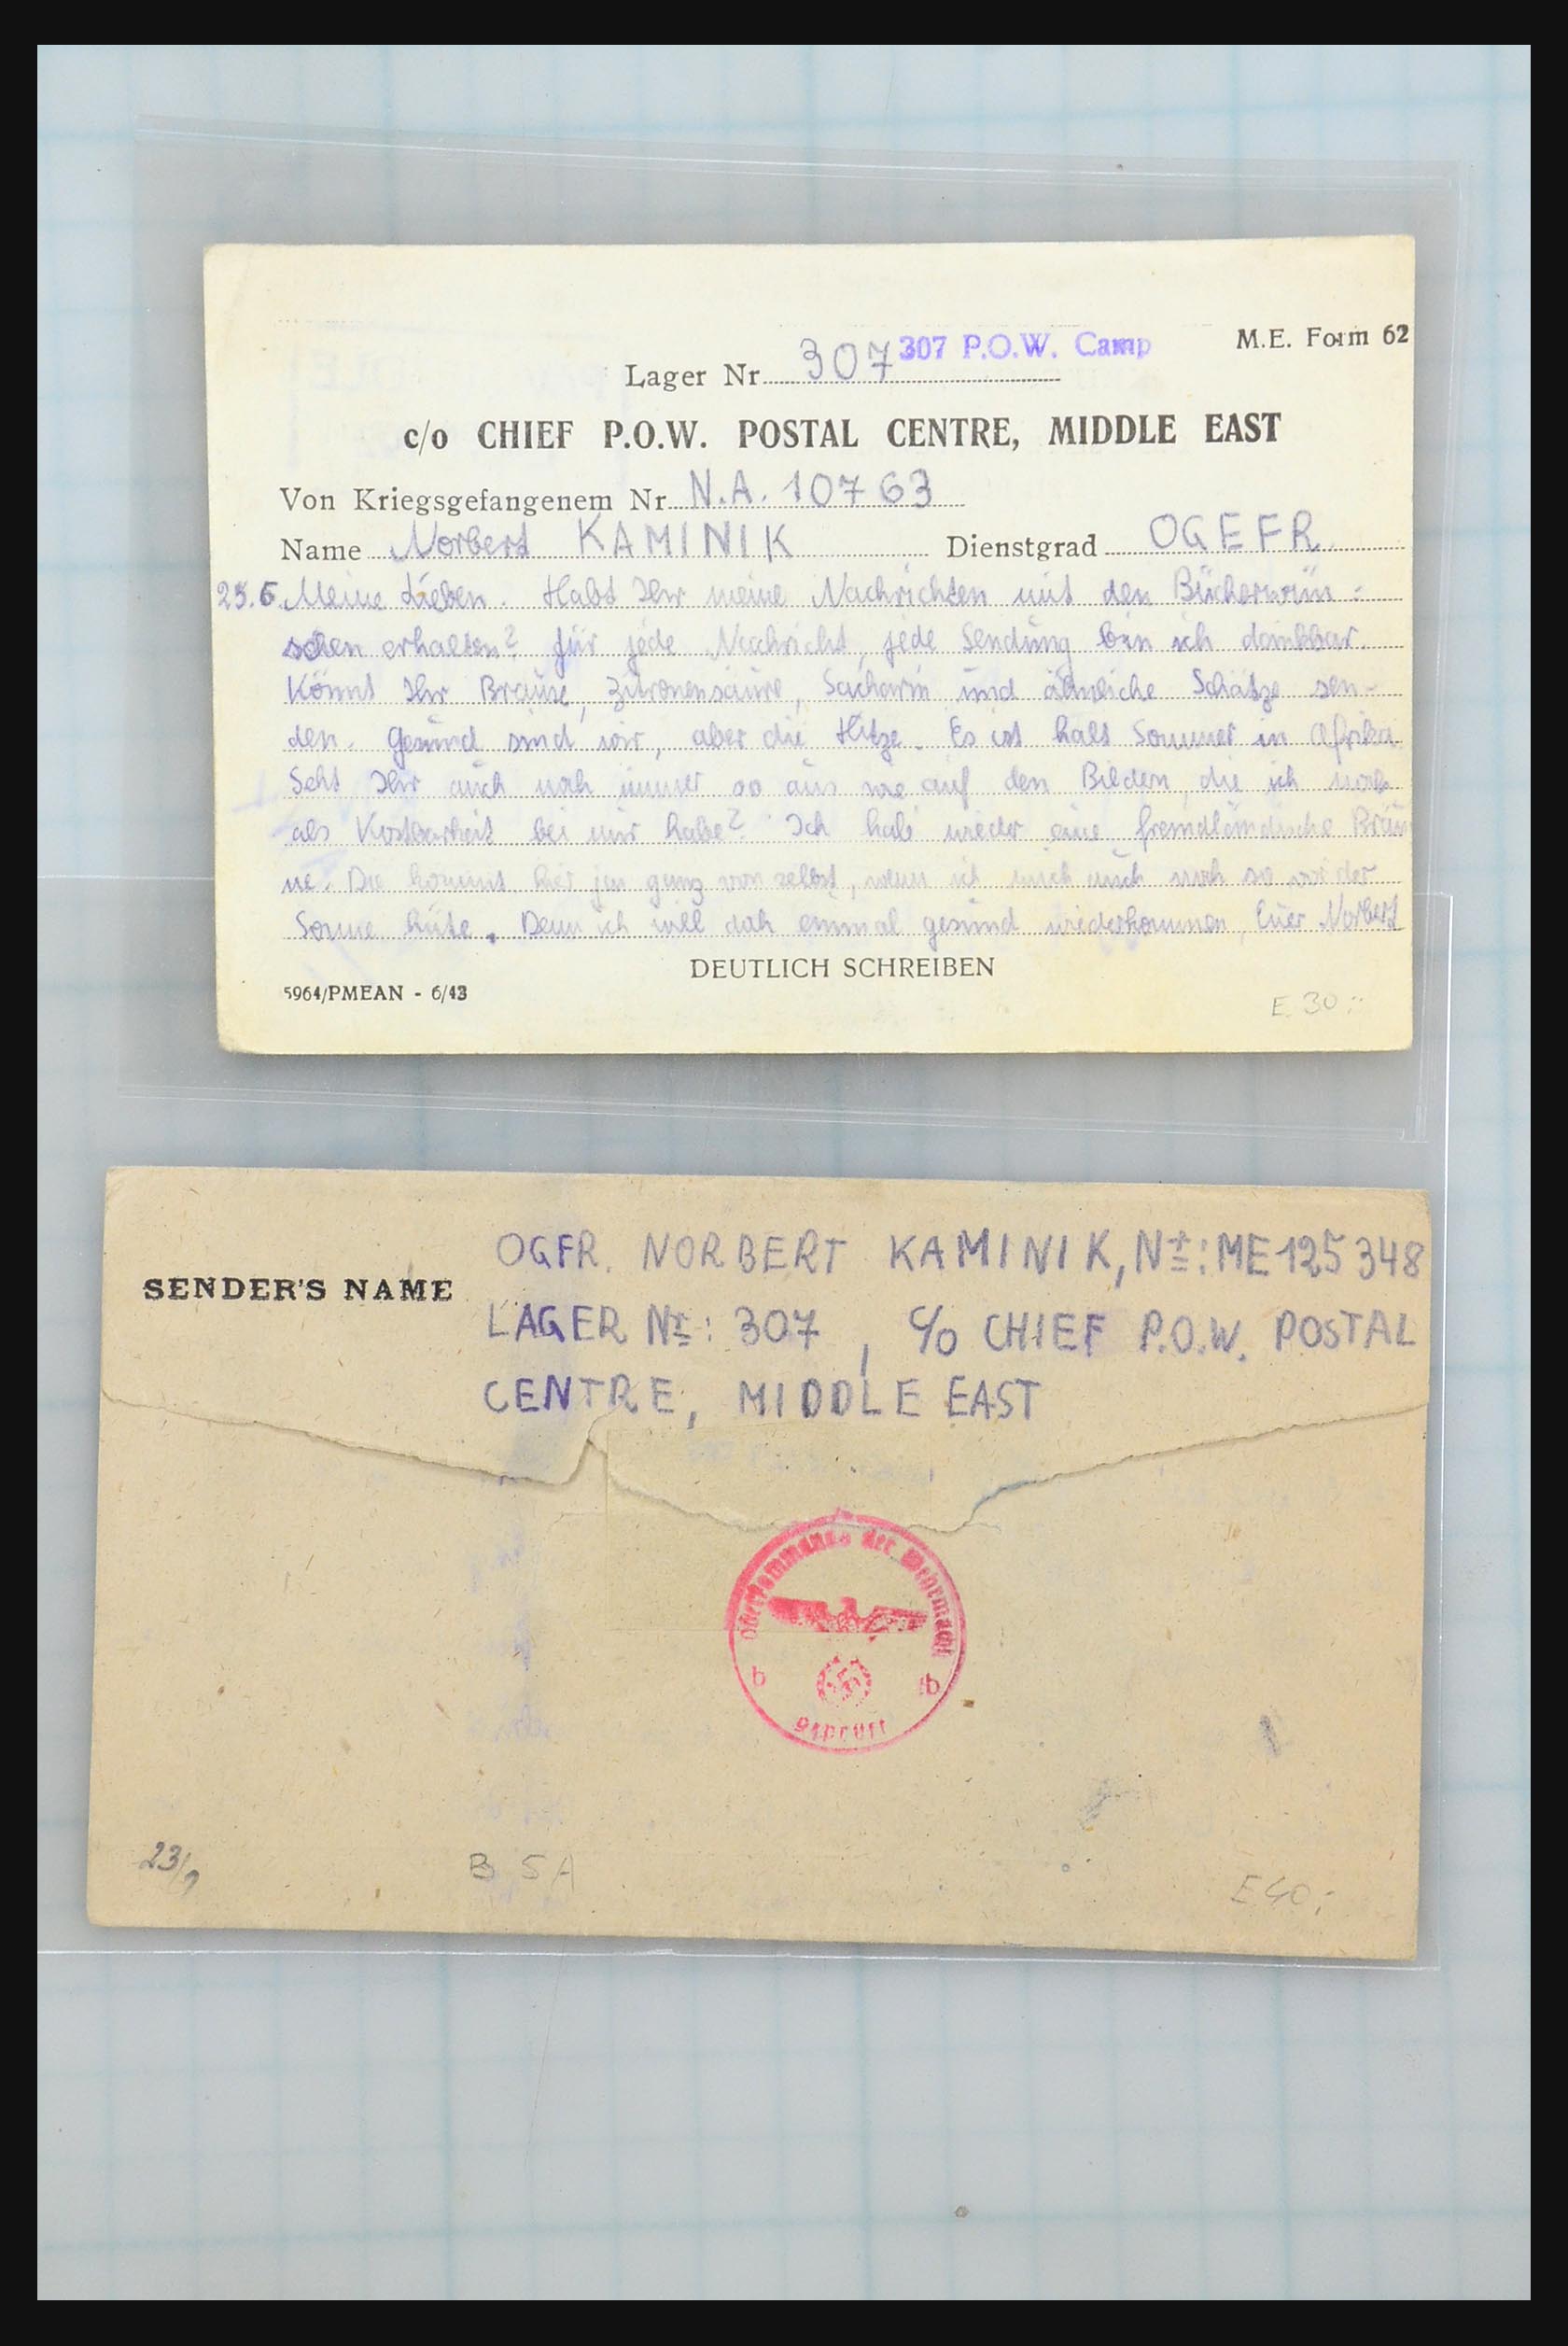 M.E. Form 62
Lager Nr 307 307 P.O.W. Camp
c/o CHIEF P.O.W. POSTAL CENTRE, MIDDLE EAST
Von Kriegsgefangenem Nr N.A. 10763
Name Norbert KAMINIK Dienstgrad OGEFR.
25.6. Meine Lieben. Habt Ihr meine Nachrichten mit den Bücherwün-
schen erhalten? Für jede Nachricht, jede Sendung bin ich dankbar.
Könnt Ihr Brause, Zitronensäure, Sacharin und ähnliche Schätze sen-
den. Gesund sind wir, aber die Hitze. Es ist halt Sommer in Afrika.
Seht Ihr auch noch immer so aus wie auf den Bildern, die ich noch
als Kostbarkeit bei mir habe? Ich hab wieder eine fremdländische Bräu
ne. Die kommt hier ganz von selbst, wenn ich mich auch noch so vor der
Sonne hüte. Denn ich will doch einmal gesund wiederkommen, Euer Norbert
DEUTLICH SCHREIBEN
5964/PMEAN - 6/43
E 30.-
OGFR. NORBERT KAMINIK, Nr: ME 125348
SENDER'S NAME
LAGER Nr: 307, c/o CHIEF P.O.W. POSTAL
CENTRE, MIDDLE EAST
Oberkommando der Wehrmacht
b b
geprüft
23/9
B 5A
E 40.-